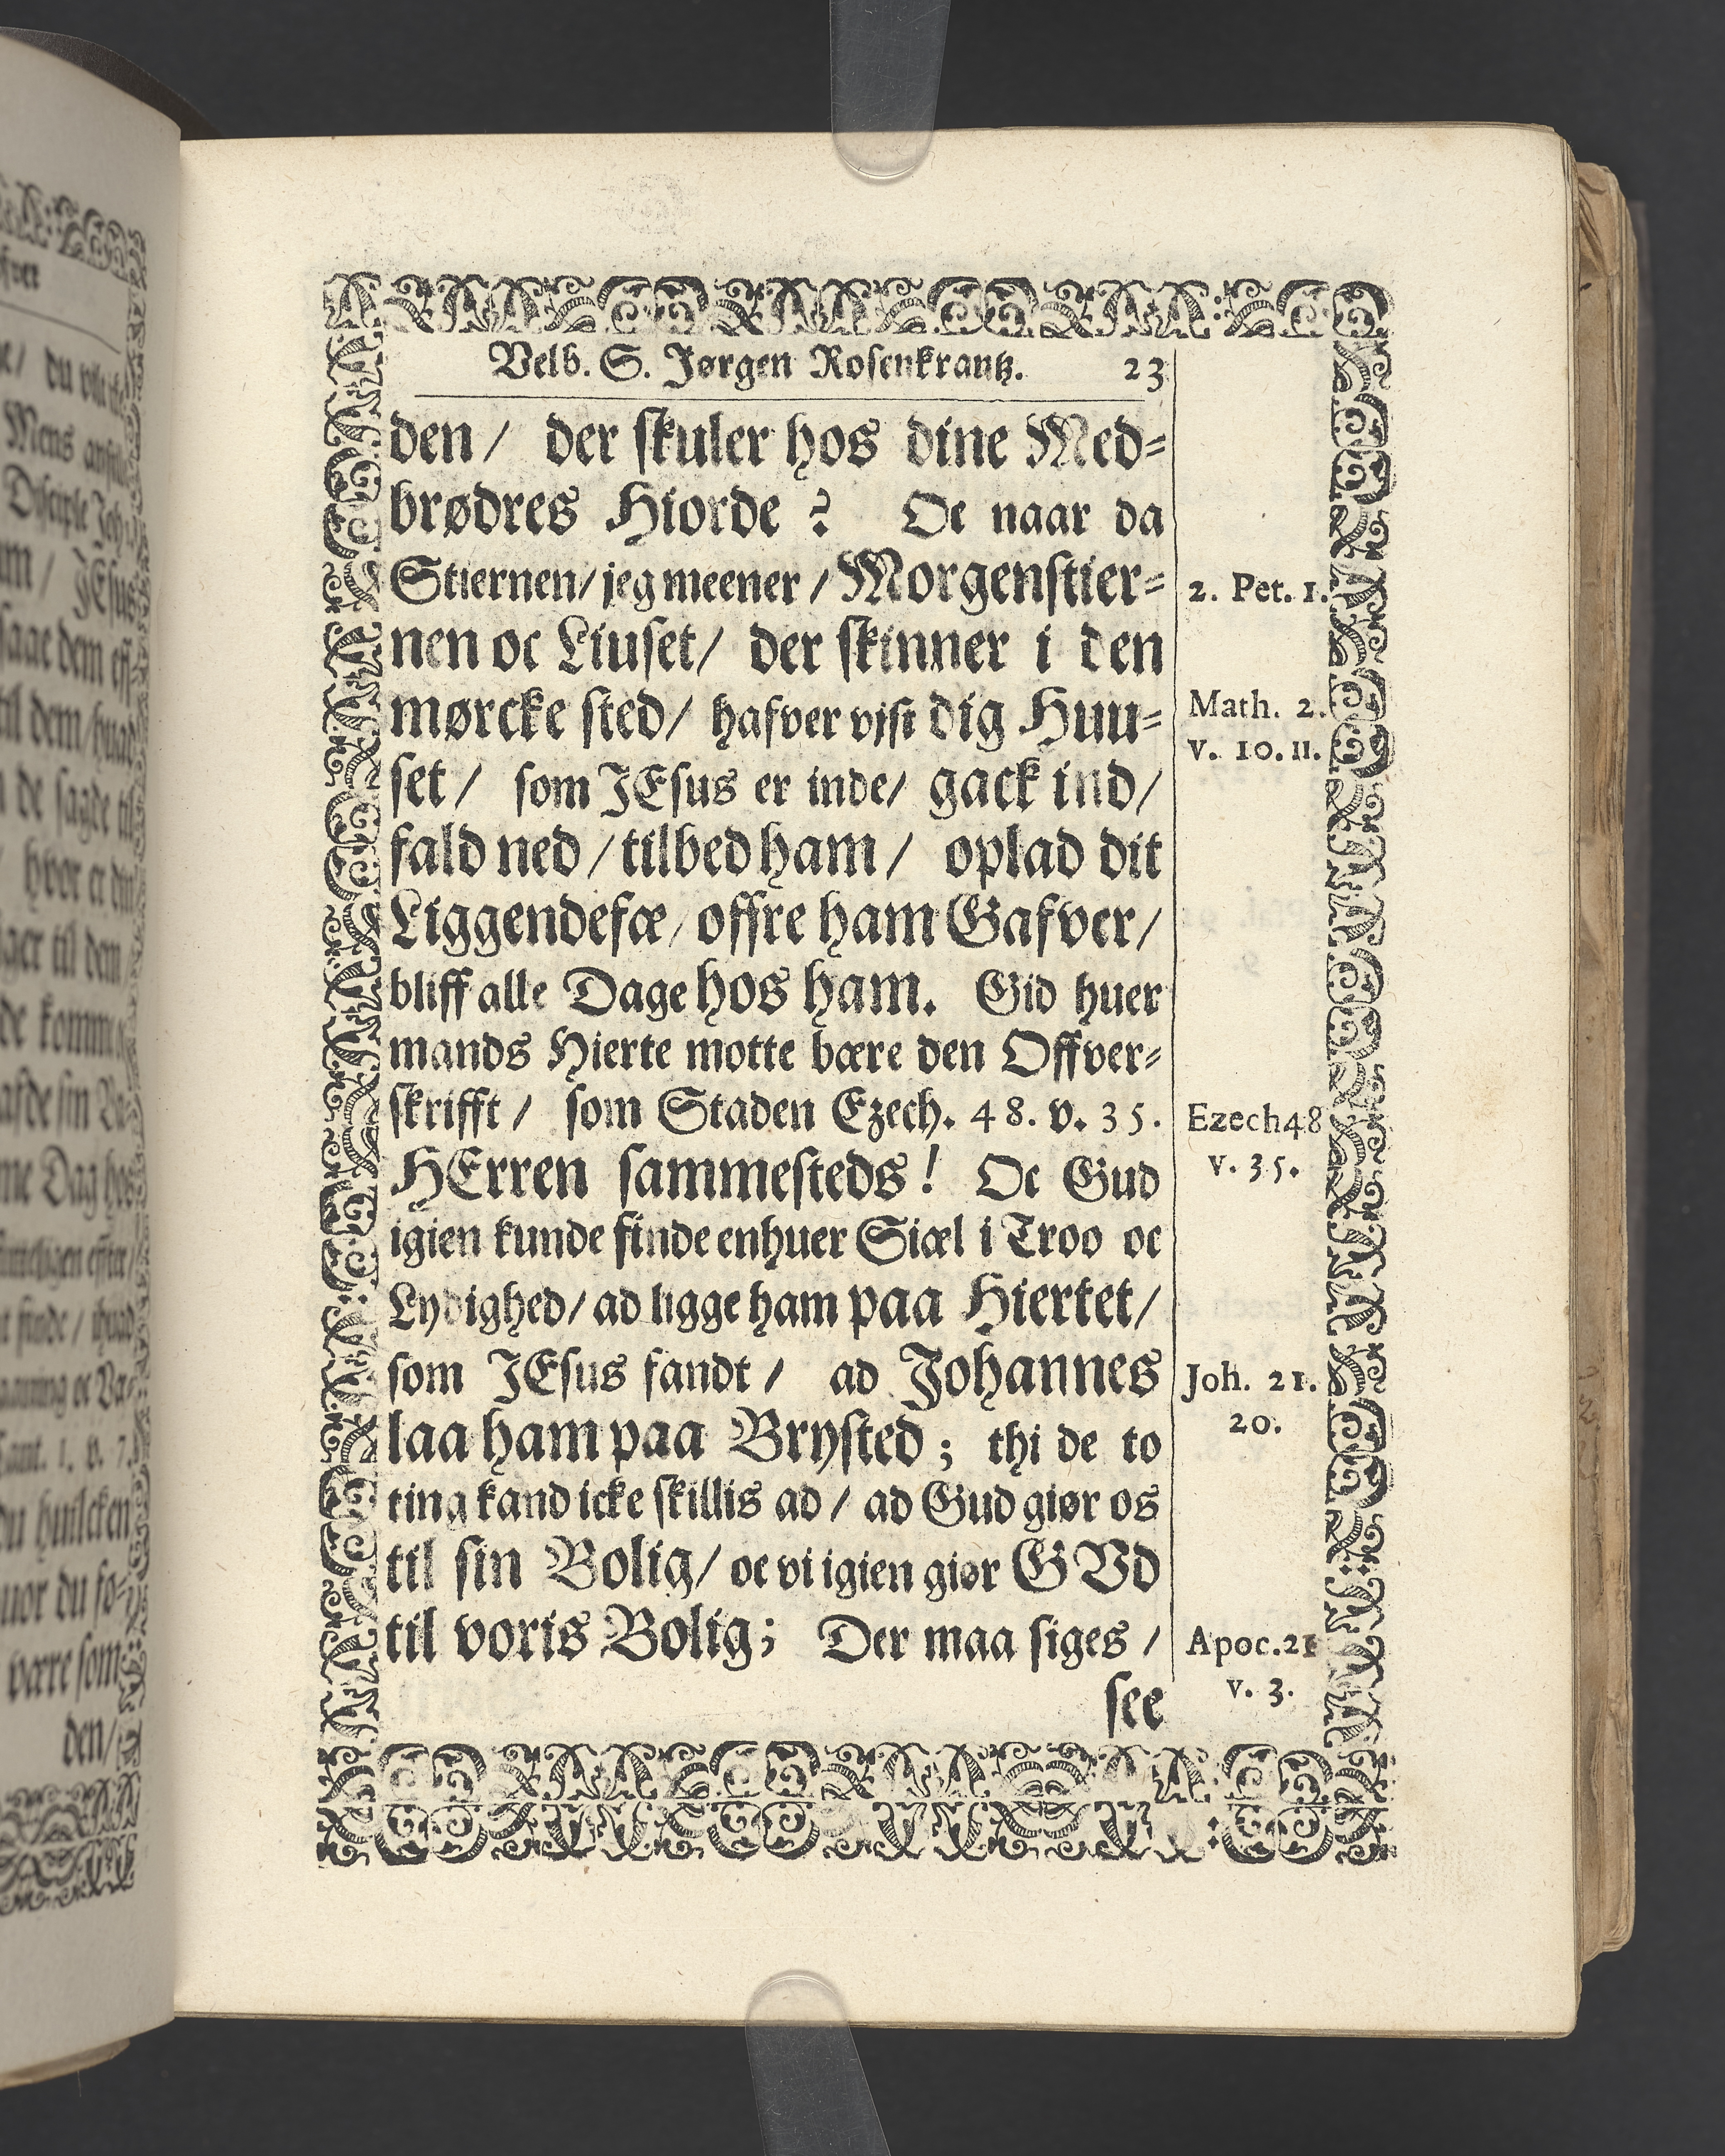 Velb. S. Jørgen Rosenkrantz. 23
den / der skuler hos dine Med=
brødres Hiorde ? Oc naar da
Stiernen / jeg meener / Morgenstier=
nen oc Liuset / der skinner i den
mørcke sted / hafver vjst dig Huu=
set / som JEsus er inde / gack ind /
fald ned / tilbed ham / oplad dit
Liggendefæ / offre ham Gafver /
bliff alle Dage hos ham. Gid huer
mands Hierte motte bære den Offver=
skrifft / som Staden Ezech. 48. v. 35.
HErren sammesteds ! Oc Gud
igien kunde finde enhuer Siæl i Troo oc
Lydighed / ad ligge ham paa Hiertet /
som JEsus fandt / ad Johannes
laa ham paa Brysted ; thi de to
ting kand icke skillis ad / ad Gud giør os
til sin Bolig / oc vi igien giør GVd
til voris Bolig ; Der maa siges /
see
2. Pet. 1.
Math. 2.
v. 10. 11.
Ezech 48
v. 35.
Joh. 21.
20.
Apoc. 21
v. 3.
du
Mens
Disciple Joh
JEsus
saae dem
til dem / huad
de sagde til
hvor er
til dem
de komme
me Dag hos
finde / huad
Cant. 1. v. 7.
du huilcken
du
være som
den /